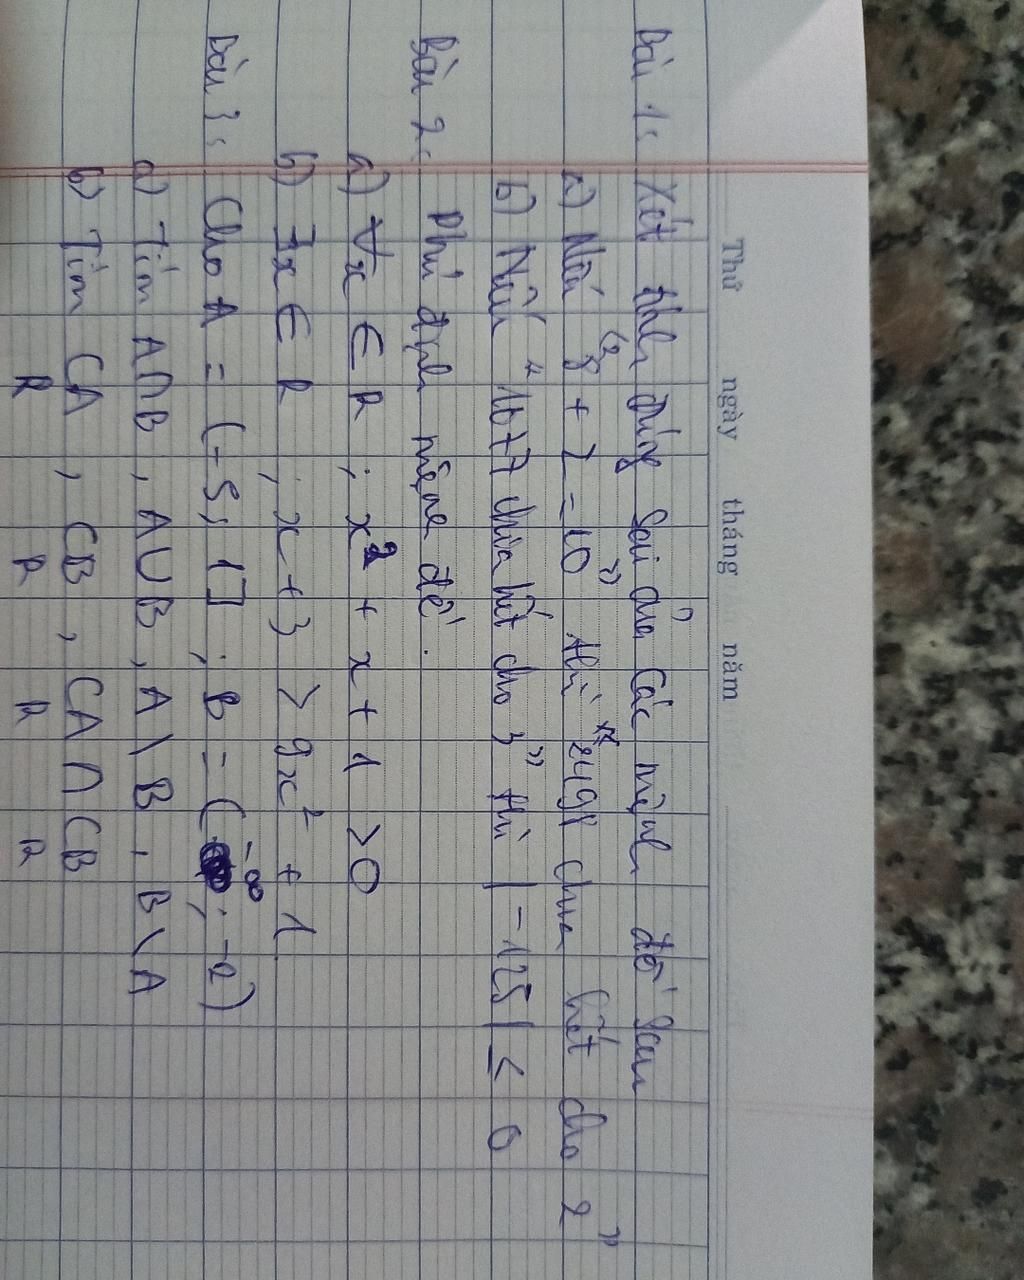 Thứ ngày tháng năm
Bài 1: Xét tính đúng sai của các mệnh đề sau
a) Nếu "8 + 2 = 10" thì "2498 chia hết cho 2"
b) Nếu "1677 chia hết cho 3" thì |-125| ≤ 0
Bài 2: Phủ định mệnh đề.
a) ∀x ∈ R ; x² + x + 1 > 0
b) ∃x ∈ R ; x + 3 > 9x² + 1
Bài 3: Cho A = (-5; 1] ; B = (-∞; -2)
a) Tìm A∩B , A∪B , A \ B , B \ A
b) Tìm CA , CB , CA ∩ CB
R R R R